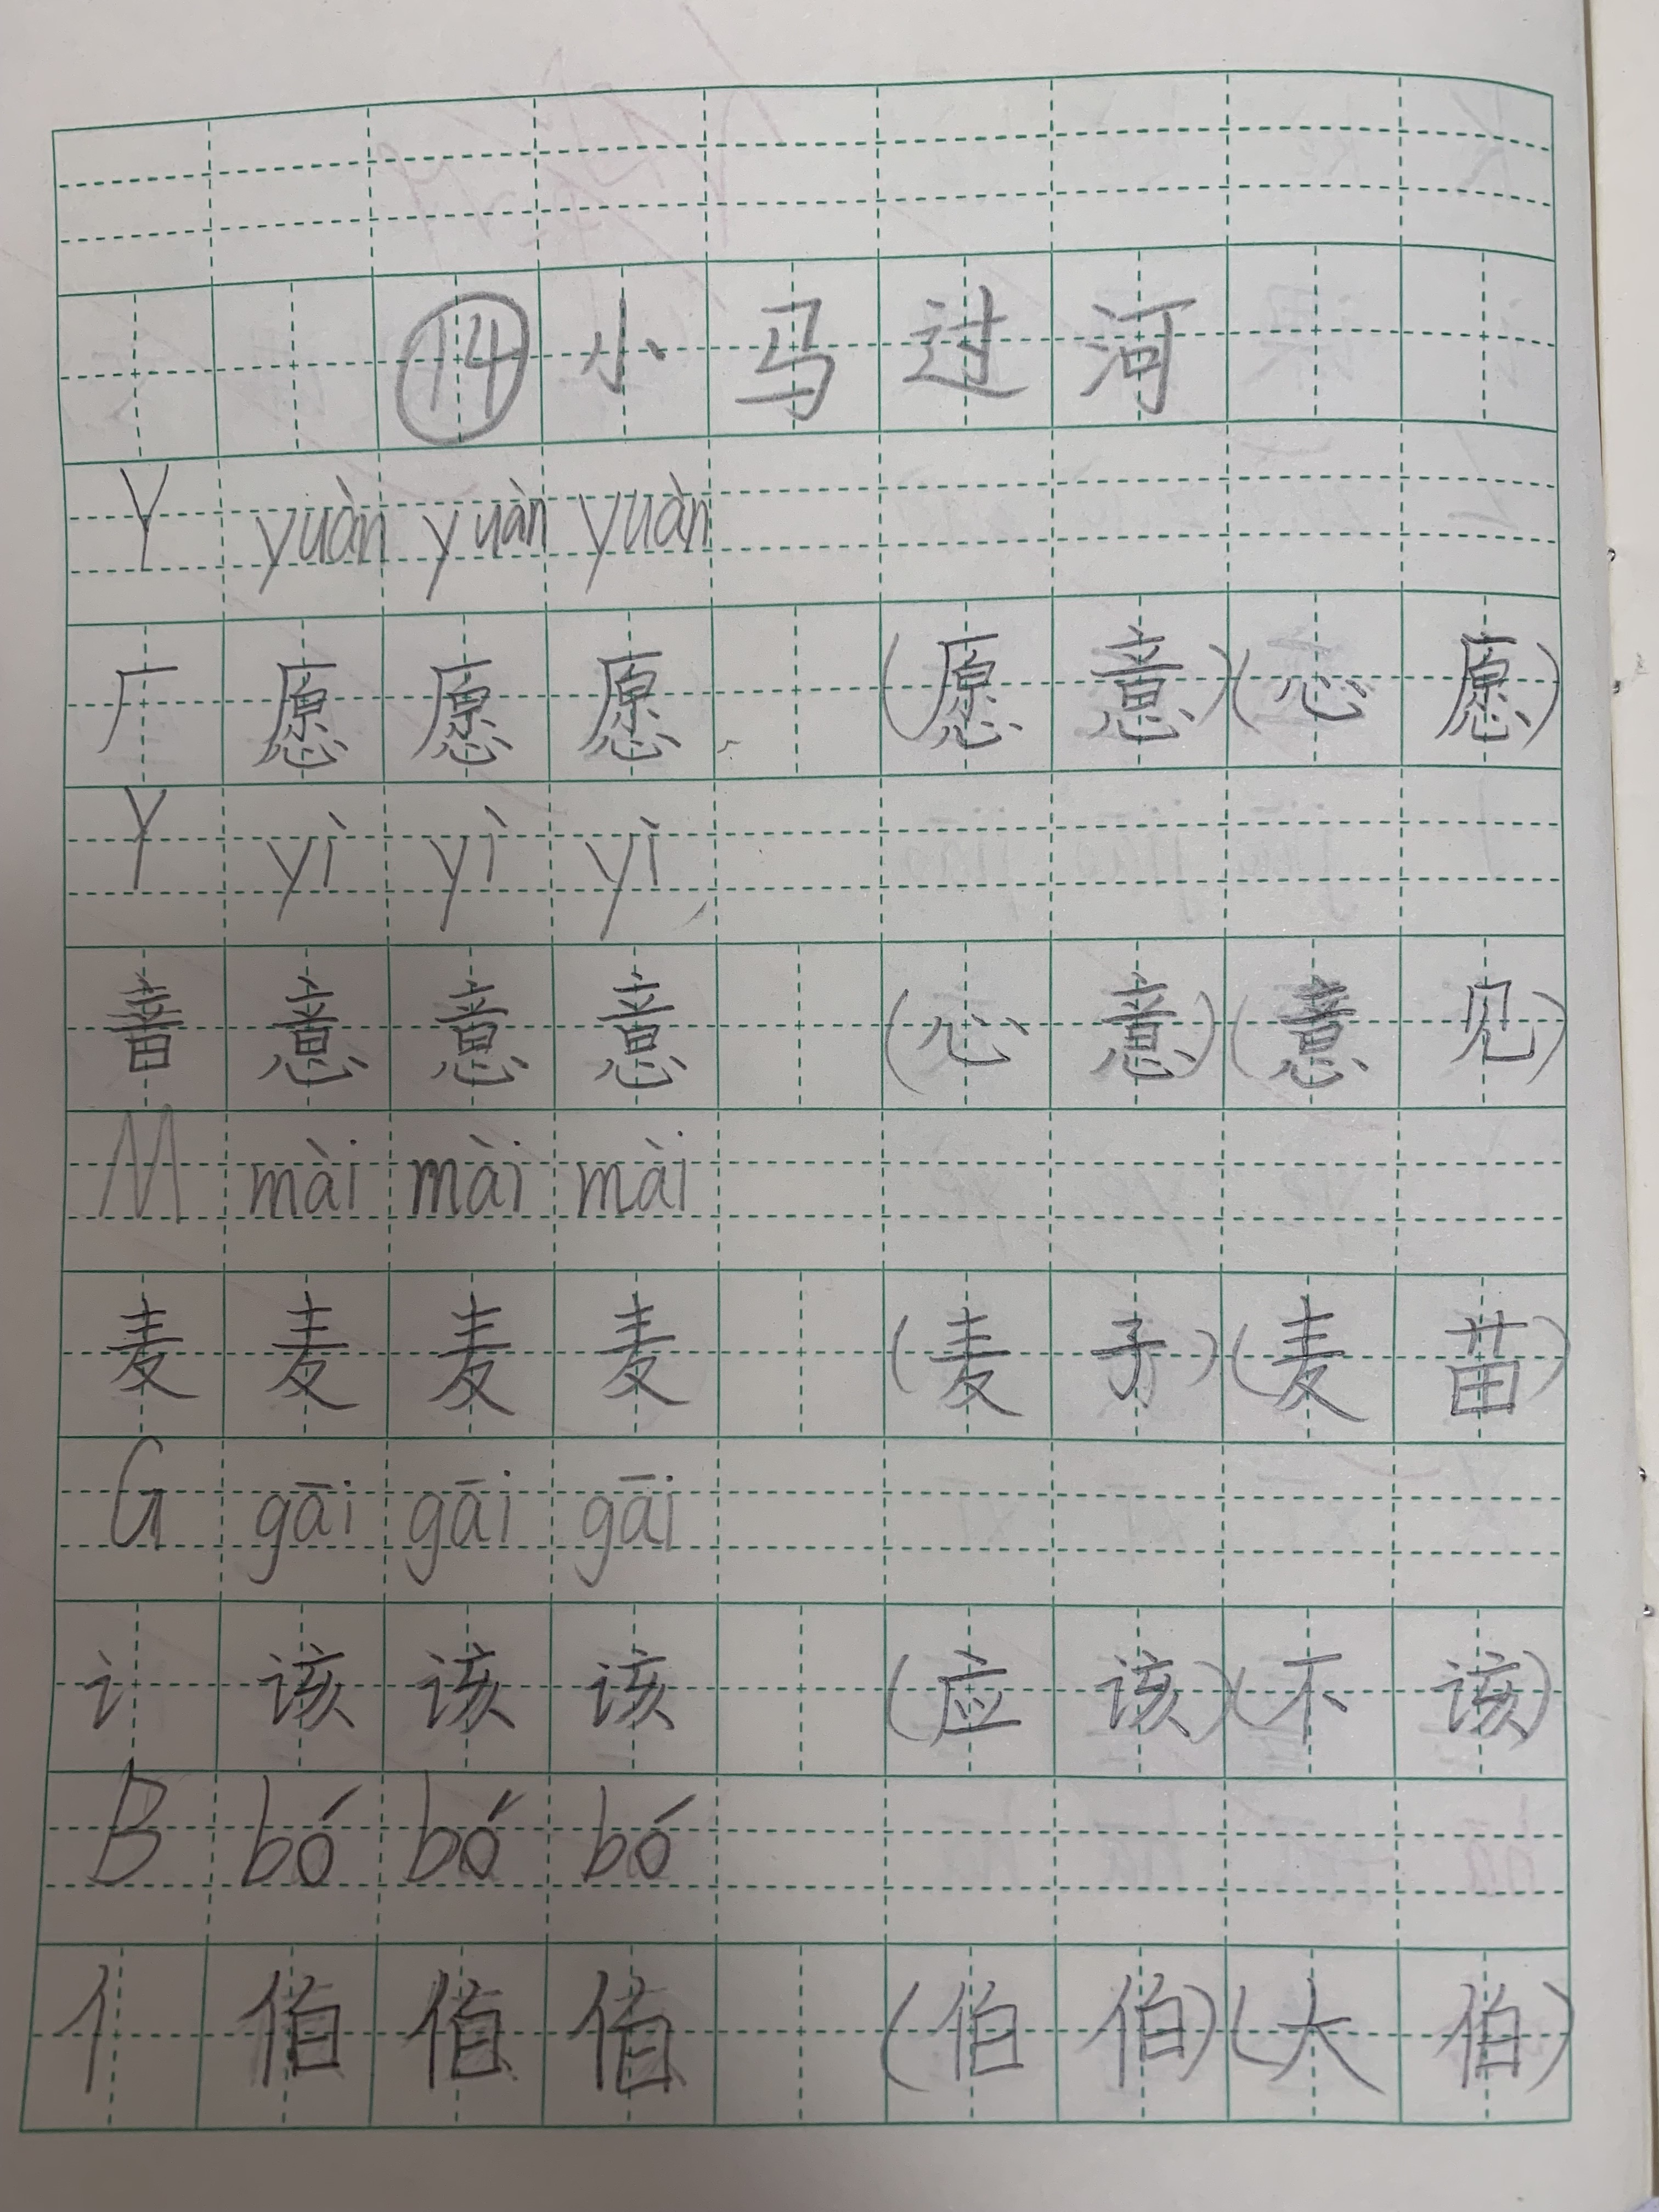 ⑭小马过河
Y yuàn yuàn yuàn
厂 愿 愿 愿 (愿意)(心愿)
Y yì yì yì
音 意 意 意 (心意)(意见)
M mài mài mài
麦 麦 麦 麦 (麦子)(麦苗)
G gāi gāi gāi
讠 该 该 该 (应该)(不该)
B bó bó bó
亻 伯 伯 伯 (伯伯)(大伯)